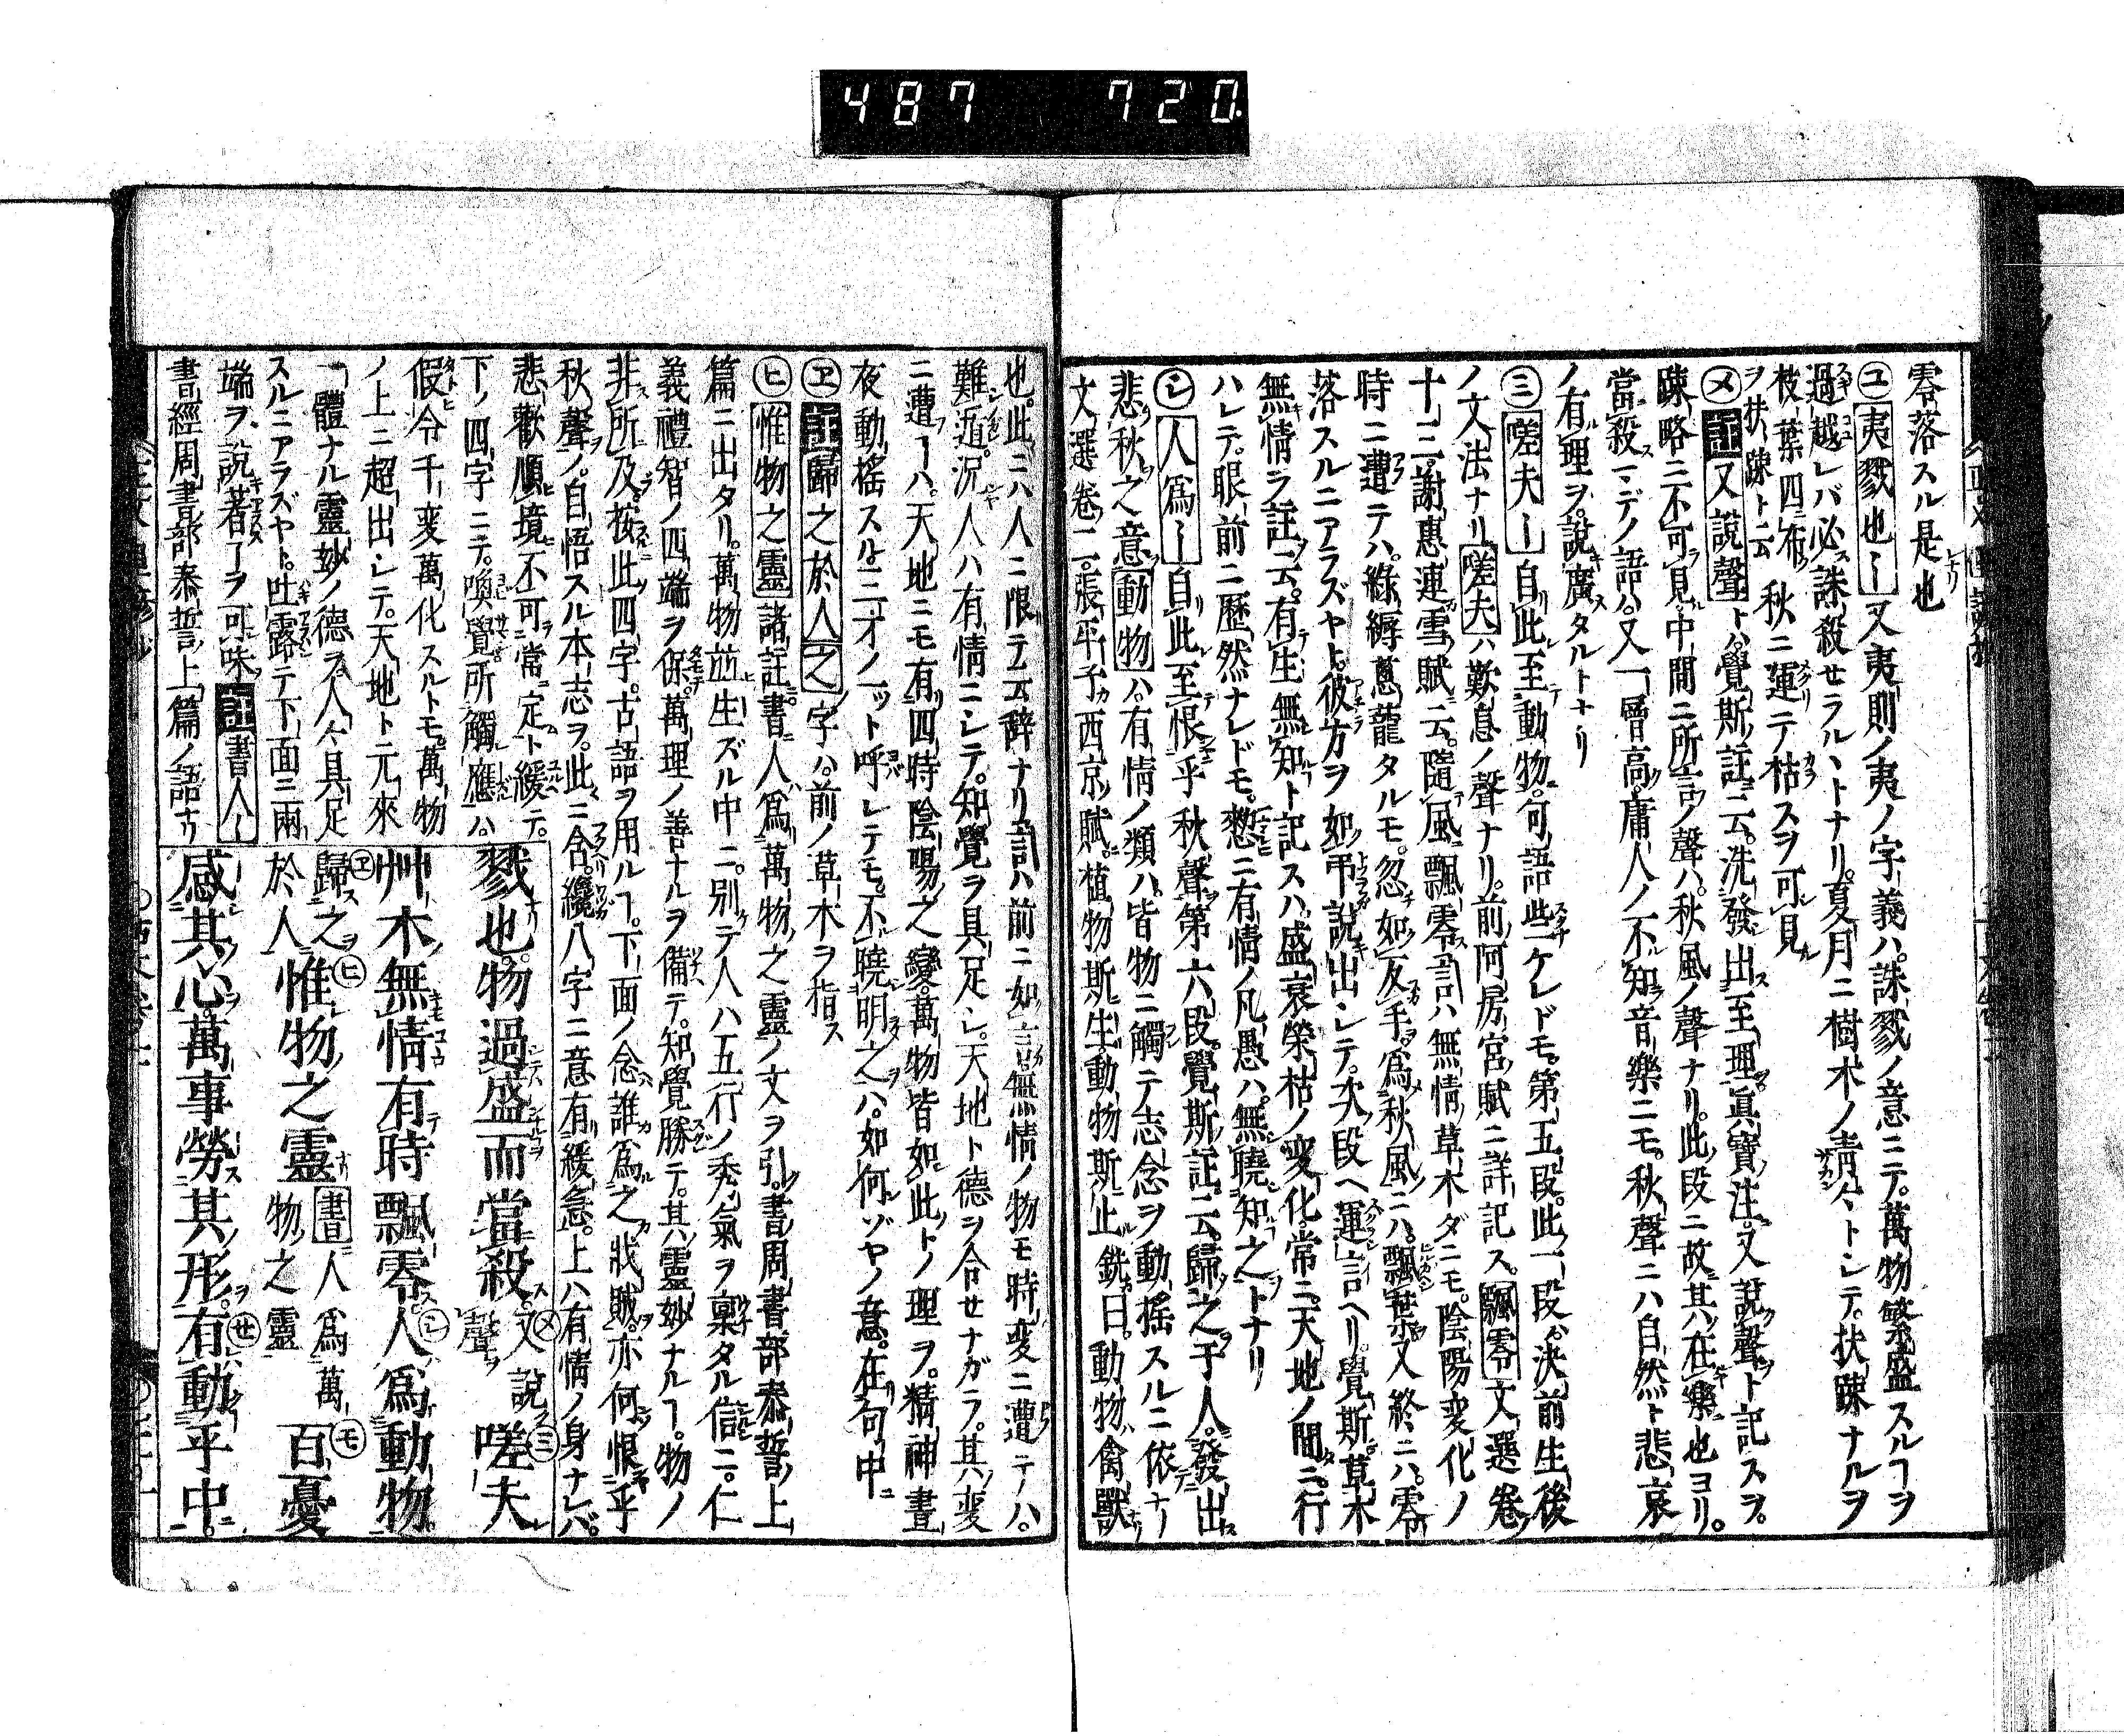 487 720.
零落スル是也
ユ 夷戮也ー又夷則ノ夷ノ字義ハ。誅戮ノ意ニテ。萬物繁盛スルヿヲ
過越レバ必誅殺セラルヽトナリ。夏月ニ樹木ノ青々トシテ。扶踈ナルヲ
枝葉四布ヲ扶踈ト云 秋ニ運テ枯スヲ可見
メ 註 又說聲トハ。覺斯註ニ云。洗發出至理眞寶注。又說聲ト記スヲ。
踈略ニ不可見。中間ニ所言ノ聲ハ。秋風ノ聲ナリ。此段ニ故其在樂也ヨリ。
當殺マデノ語ハ。又一層高。庸人ノ不知音樂ニモ。秋聲ニハ自然ト悲哀
ノ有理ヲ。說廣タルトナリ
ミ 嗟夫ー自此至動物。句語些ケレドモ。第五段。此一段ハ決前生後
ノ文法ナリ嗟夫ハ歎息ノ聲ナリ。前阿房宮賦ニ詳記ス。飄零文選卷
十三。謝惠連雪賦ニ云。隨風飄零。言ハ無情草木ダニモ。陰陽変化ノ
時ニ遭テハ。綠縟葱蘢タルモ。忽如反手。爲秋風ニハ。飄葉又終ニハ。零
落スルニアラズヤト。彼方ヲ如弔說出シテ。次段ヘ運言ヘリ。覺斯草木
無情ラ註ニ云。有生無知ト記スハ。盛衰榮枯ノ変化。常ニ天地ノ間ニ。行
ハレテ。眼前ニ歷然ナレドモ。愁ニ有情ノ凡愚ハ。無曉知之トナリ
シ 人爲ー自此至恨乎秋聲第六段。覺斯註ニ云。歸之于人。發出
悲秋之意 動物ハ。有情ノ類ハ。皆物ニ觸テ志念ヲ動搖スルニ依ナリ
文選卷二。張平子西京賦。植物斯生動物斯止 銑曰。動物禽獸
也。此ニハ人ニ限テ云辭ナリ言ハ前ニ如言無情ノ物モ時変ニ遭テハ。
難遁。況人ハ有情ニシテ。知覺ヲ具足シ。天地ト德ヲ合セナガラ。其変
ニ遭ーハ。天地ニモ有四時陰陽之變。萬物皆如此トノ理ヲ。精神晝
夜動搖スルニ。オノット呼レテモ。不曉明之ハ。如何ゾヤノ意。在句中
ヱ 註 歸之於人之字ハ。前ノ草木ヲ指ス
ヒ 惟物之靈 諸註ニ。書人爲萬物之靈ノ文ヲ引。書周書部泰誓上
篇ニ出タリ。萬物並生ズル中ニ。別テ人ハ五行ノ秀氣ヲ稟タル信ニ。仁
義禮智ノ四端ヲ保。萬理ノ善ナルヲ備テ。知覺勝テ。其靈妙ナルヿ。物ノ
非所及。按此四字。古語ヲ用ルヿ。下面ノ念誰爲之戕賊。亦何恨乎
秋聲ノ。自悟スル本志ヲ。此ニ含。纔八字ニ意有緩急。上ハ有情ノ身ナレバ。
悲歡順境不可常定ト緩テ。
下ノ四字ニテ。喚覺所觸應ハ。
假令千変萬化スルトモ。萬物
ノ上ニ超出シテ。天地ト元來
一體ナル靈妙ノ德ヲ人々具足
スルニアラズヤト。吐露テ下面ニ兩
端ヲ說著了ヲ可味 註 書人ー
書經周書部泰誓上篇ノ語ナリ
戮也。物過盛而當殺。メ又說聲 ミ嗟夫
艸木無情有時飄零シ人爲動物。
ヱ歸之於人 ヒ惟物之靈 書人爲萬物之靈 モ百憂
感其心。萬事勞其形。セ有動乎中。